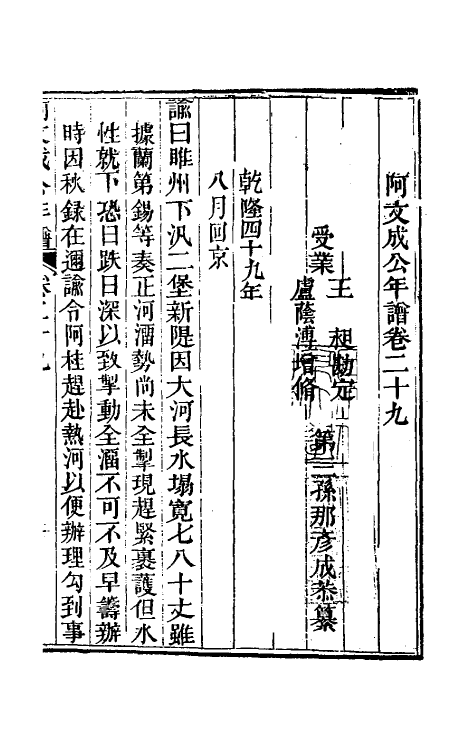 阿文成公年譜卷二十九
第三孫那彥成恭纂
受業
王昶勘定
盧蔭溥增修
乾隆四十九年
八月回京
諭曰睢州下汛二堡新隄因大河長水塌寬七八十丈雖
據蘭第錫等奏正河溜勢尚未全掣現趕緊裹護但水
性就下恐日跌日深以致掣動全溜不可不及早籌辦
時因秋錄在邇諭令阿桂趕赴熱河以便辦理勾到事
阿文成公年譜 卷二十九